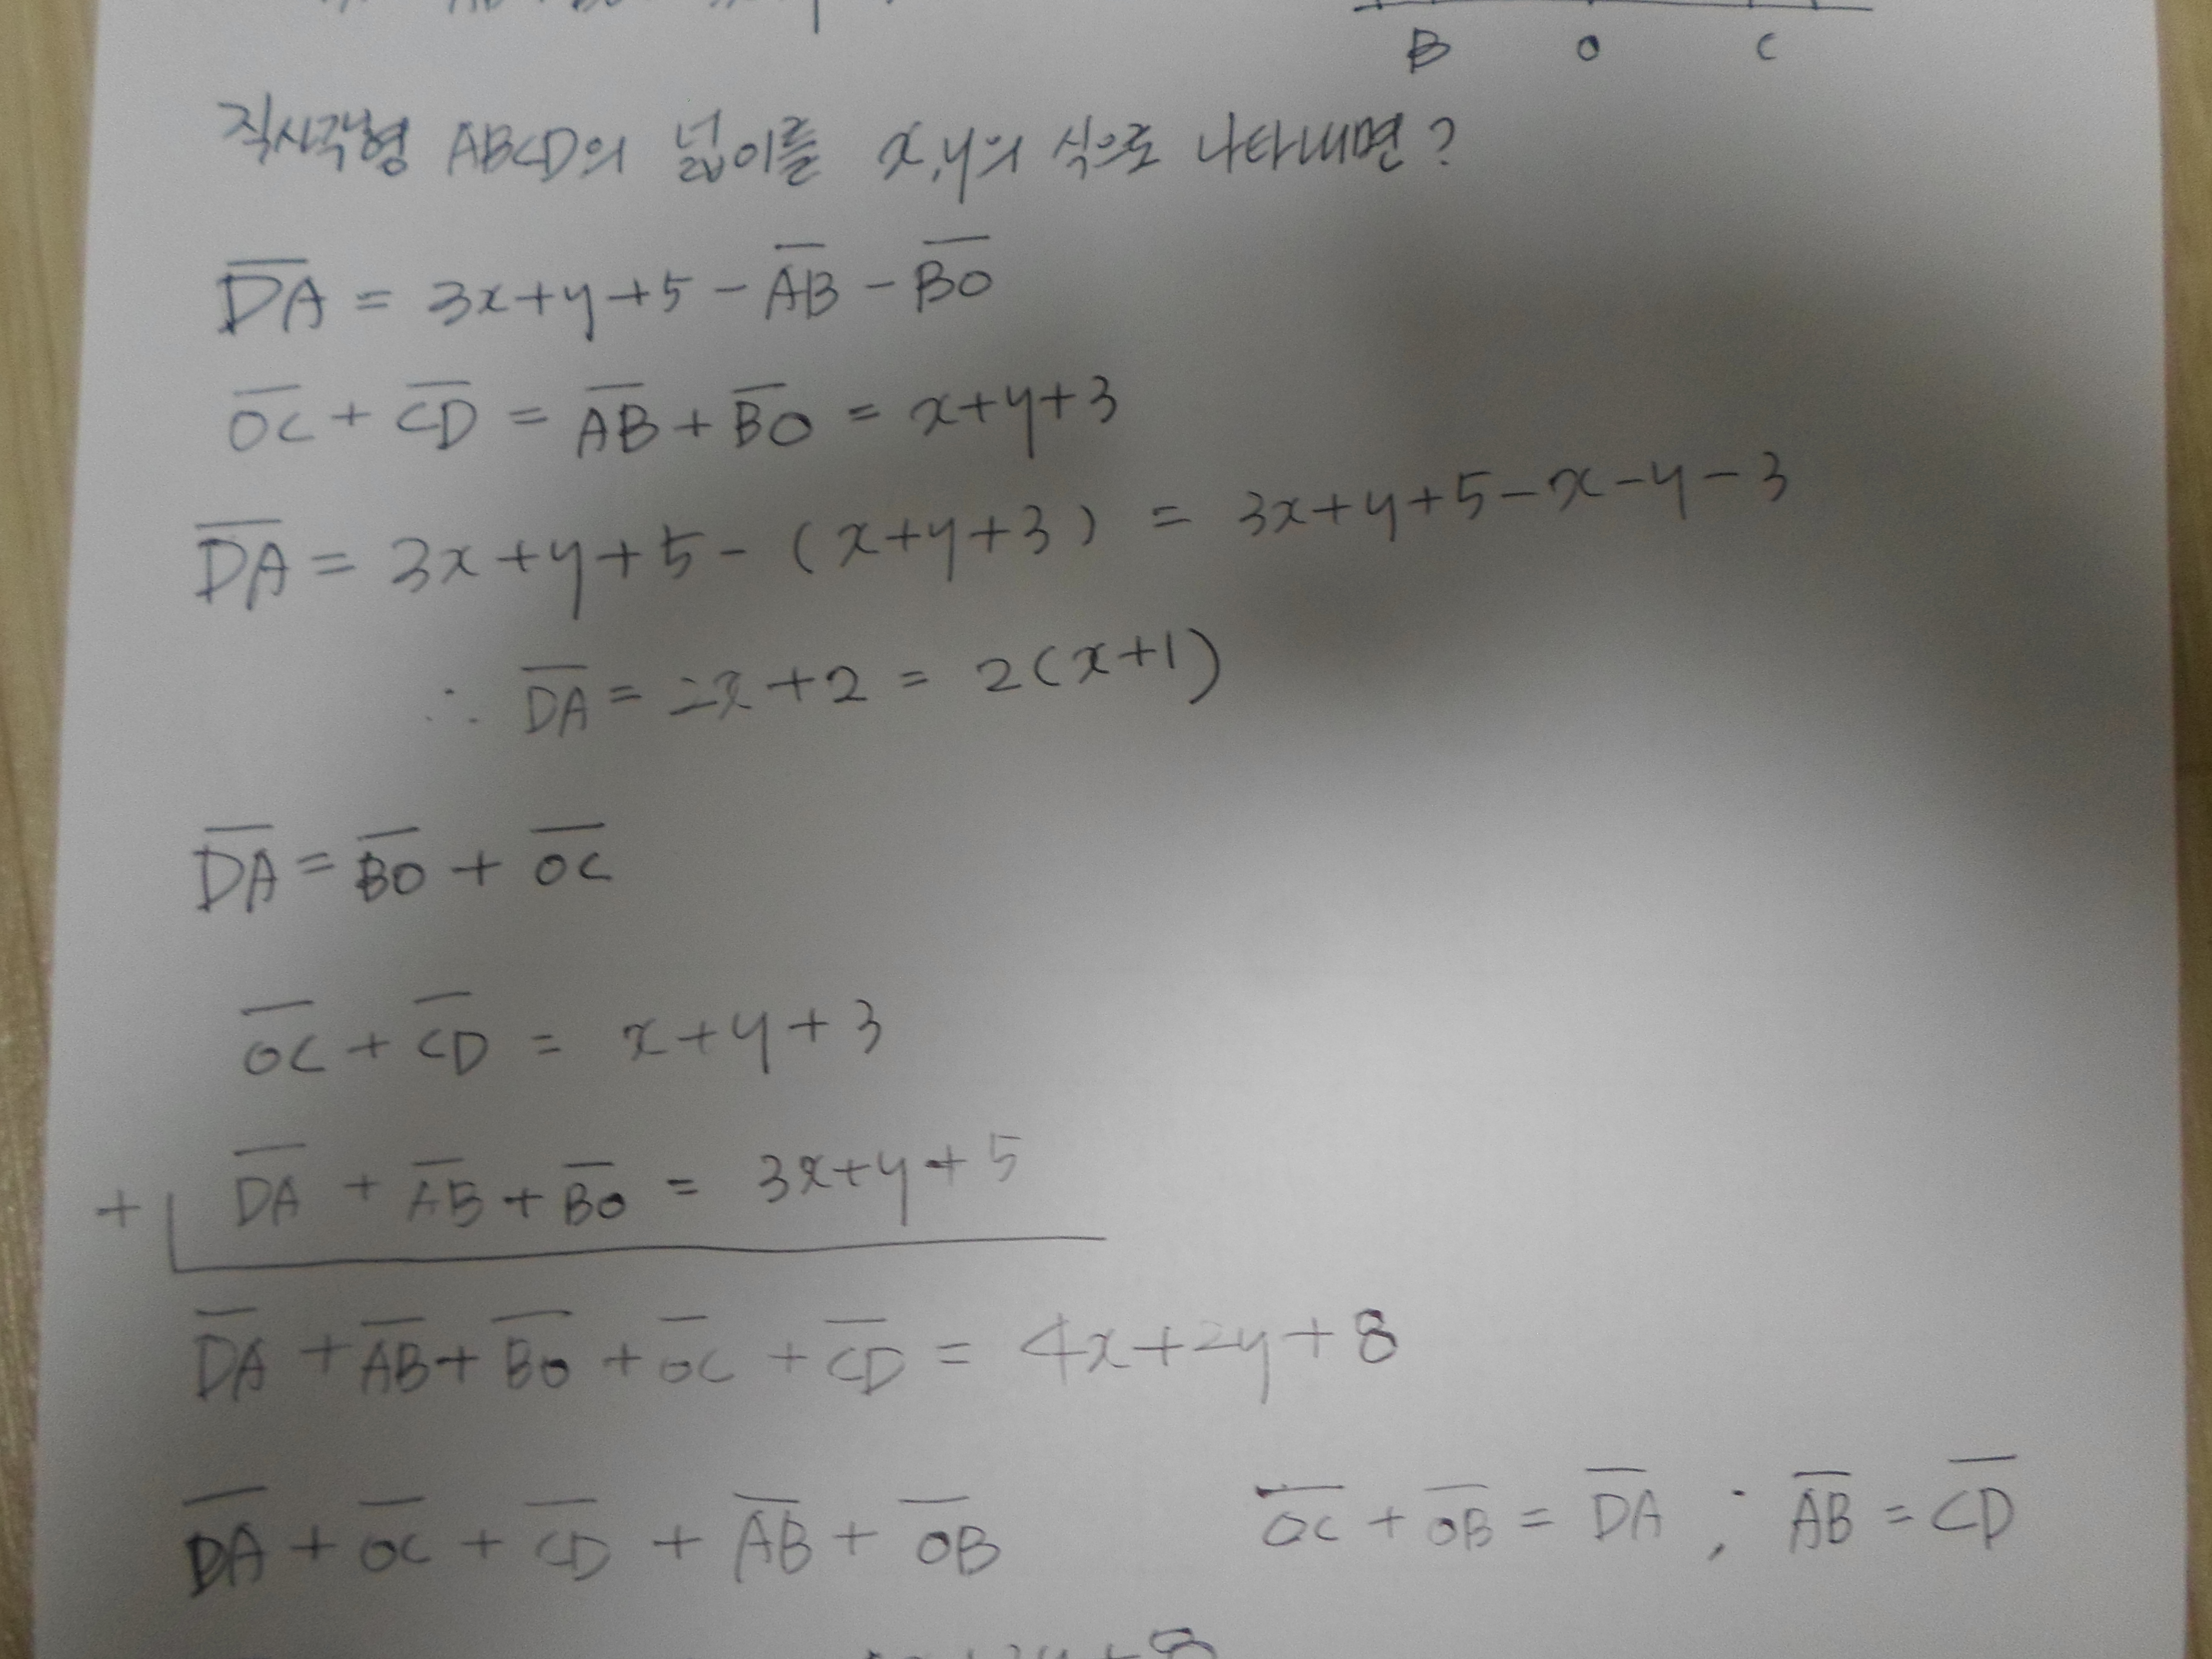 B O C
직사각형 ABCD의 넓이를 x,y의 식으로 나타내면?
D̅A̅ = 3x+y+5-A̅B̅-B̅O̅
O̅C̅+C̅D̅ = A̅B̅+B̅O̅ = x+y+3
D̅A̅ = 3x+y+5-(x+y+3) = 3x+y+5-x-y-3
∴ D̅A̅ = 2x+2 = 2(x+1)
D̅A̅ = B̅O̅ + O̅C̅
O̅C̅ + C̅D̅ = x+y+3
+ D̅A̅ + A̅B̅ + B̅O̅ = 3x+y+5
D̅A̅ + A̅B̅ + B̅O̅ + O̅C̅ + C̅D̅ = 4x+2y+8
D̅A̅ + O̅C̅ + C̅D̅ + A̅B̅ + O̅B̅ O̅C̅ + O̅B̅ = D̅A̅ ; A̅B̅ = C̅D̅